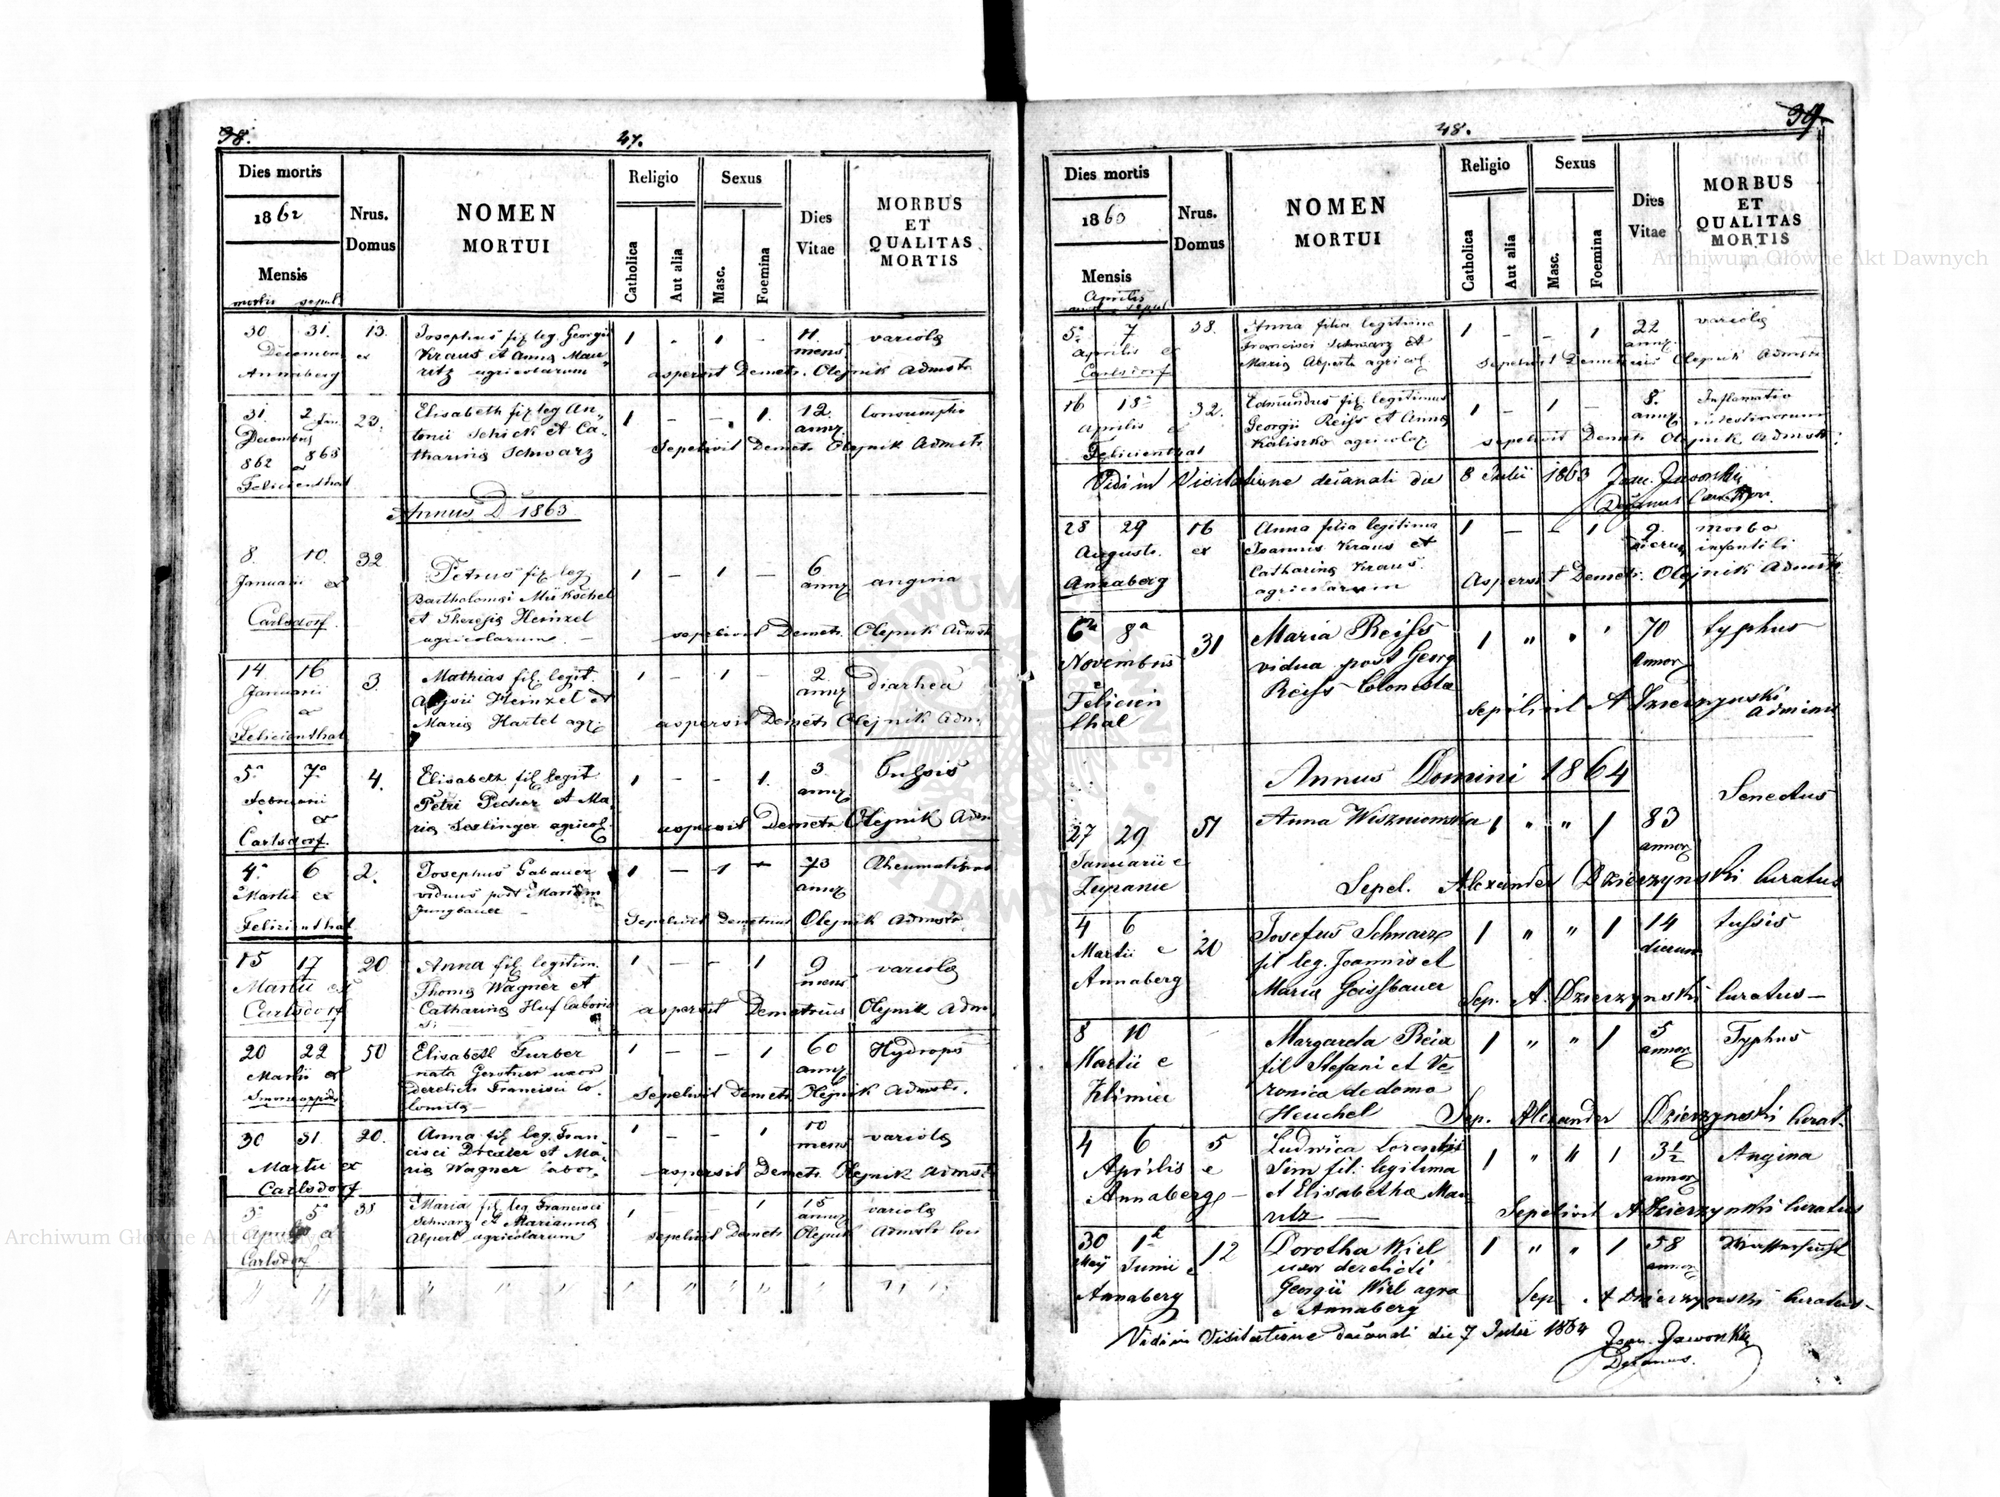 38.
47.
Dies mortis
1862
Mensis
mortis sepult
Nrus.
Domus
NOMEN
MORTUI
Religio
Catholica
Aut alia
Sexus
Masc.
Foemina
Dies
Vitae
MORBUS
ET
QUALITAS
MORTIS
30 31. 13. Josephus fil. leg. Georgii 1 - 1 - 11. variola
Decembris ex Kraus et Anna Mau mens.
Annaberg ritz agricolarum aspersit Demetr. Olejnik Admstr.
31. 2 Jan. 23. Elisabeth fil. leg. An- 1 - - 1. 12. Consumptio
Decembris tonii Schick et Ca- annor.
862 863 tharina Schwarz Sepelivit Demetr Olejnik Admstr.
ex
Felicienthal
Annus D 1863
8. 10. 32 Petrus fil. leg. 1 - 1 - 6 angina
Januarii ex Bartholomei Mukschel annor.
Carlsdorf. et Theresia Heinzel
agricolarum. - sepelivit Demetr. Olejnik Admstr
14. 16 3. Mathias fil. legit. 1 - 1 - 2. diarhea
Januarii Heinzel et annor.
ex Maria Hartel agr. aspersit Demetr Olejnik Adm.
Felicienthal
5a 7a 4. Elisabeth fil. legit. 1 - - 1. 3. Tussis
Februarii Petri Pecher et Ma- annor.
ex ria agricol. aspersit Demetr Olejnik Adm
Carlsdorf.
4. 6 2. Josephus Gabauer 1 - 1 - 73 Rheumatismus
Martii ex viduus post Mariam annor.
Felicienthal Jungbauer - Sepelivit Demetrius Olejnik Admstr.
15 17 20 Anna fil. legitim. 1 - - 1 9 variola
Martii ex Thoma Wagner et mens
Carlsdorf Catharina Huf aspersit Demetrius Olejnik Adm.
20 22 50 Elisabeth Gurber 1 - - 1 60 Hydrops
Martii ex nata Gerstner uxor annor.
derelicta Francisci Co- Sepelivit Demetr Olejnik Admstr.
lonista -
30 31. 20. Anna fil. leg. Fran- 1 - - 1 10 variola
Martii ex cisci Drexler et Ma- mens
Carlsdorf ria Wagner labor. aspersit Demetr. Olejnik Admst.
3a 5a 38 Maria fil. leg. Francisci 1 - - 1 15 variola
Aprilis ex Schwarz et Marianna annor.
Carlsdorf Alpert agricolarum sepelivit Demetr Olejnik Admstr loci
39.
48.
Dies mortis
1863
Mensis
Aprilis
sepul
Nrus.
Domus
NOMEN
MORTUI
Religio
Catholica
Aut alia
Sexus
Masc.
Foemina
Dies
Vitae
MORBUS
ET
QUALITAS
MORTIS
5a 7 38. Anna filia legitima 1 - - 1 22 variola
Aprilis ex Francisci Schwarz et annor.
Carlsdorf Maria Alperta agricol. sepelivit Demetrius Olejnik Admstr.
16 18a 32. Edmundus fil. legitimus 1 - 1 - 8. Inflamatio
Aprilis ex Georgii Reiss et Anna annor. intestinorum
Felicienthal Kalinko agricolar. sepelivit Demetr Olejnik Admstr.
Vidi in Visitatione decanali die 8 Julii 1863 Jaworski
Decanus
28 29 16 Anna filia legitima 1 - - 1 9. morbo
Augusti. ex Joannis Kraus et dierum infantili
Annaberg Catharina Kraus.
agricolarum Aspersit Demetr. Olejnik Admstr
6ta 8a 31 Maria Reiss 1 " " ' 70 typhus
Novembris vidua post Georg annor.
e Felicien Reiss Colonista
thal sepelivit A Dzierzynski
Adminis
Annus Domini 1864
27 29 51 Anna Wiszniowska 1 " " 1 83 Senectus
Januarii e annor.
Zupanie Sepel. Alexander Dzierzynski Curatus
4 6 20 Josefus Schwarz 1 " " 1 14 tussis
Martii e fil leg. Joannis et dierum
Annaberg Maria Geissbauer Sep. A. Dzierzynski Curatus -
8 10 Margareta Reix 1 " " 1 5 Typhus
Martii e fil Stefani et Ve- annor.
Klimiec ronica de domo
Heuchel Sep. Alexander Dzierzynski Curat.
4 6 5 Ludwica Lorentis 1 " " 1 3½ Angina
Aprilis e Sim fil. legitima annor.
Annaberg - et Elisabetha Mau
ritz - Sepelivit A Dzierzynski Curatus
30 1a 12 Dorotha Wiel 1 " " 1 58 Wassersucht
Maj Junii e uxor derelicti annor.
Annaberg Georgii Wiel agra
e Annaberg Sep. A Dzierzynski Curatus -
Vidi in Visitatione decanali die 7 Julii 1864 Jaworski
Decanus.
Archiwum Główne Akt Dawnych
Archiwum Główne Akt Dawnych